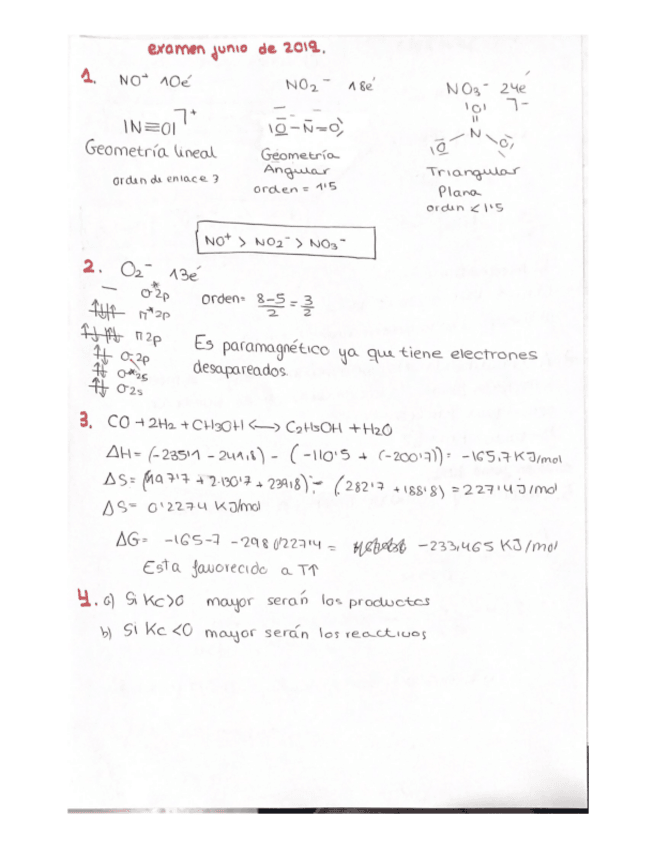 examen junio de 2019.
1. NO⁺ 10é NO₂⁻ 18é NO₃⁻ 24é
|N≡O|⁺ |O-N=O| |O| N |O O|
Geometría lineal
orden de enlace 3
Geometría
Angular
orden = 1'5
Triangular
Plana
orden < 1'5
NO⁺ > NO₂⁻ > NO₃⁻
2. O₂⁻ 13é
σ*2p
π*2p
π2p
σ2p
σ*2s
σ2s
orden= 8-5/2 = 3/2
Es paramagnético ya que tiene electrones
desapareados.
3. CO + 2H₂ + CH₃OH ⟷ C₂H₅OH + H₂O
ΔH = (-235'1 - 241,8) - (-110'5 + (-200'7)) = -165,7 KJ/mol
ΔS = (197'7 + 2·130'7 + 239,8) - (282'7 + 188'8) = 227'4 J/mol
ΔS = 0'2274 KJ/mol
ΔG = -165-7 -298·0'22714 = -233,465 KJ/mol
Esta favorecido a T↑
4. a) Si Kc>0 mayor serán los productos
b) Si Kc <0 mayor serán los reactivos